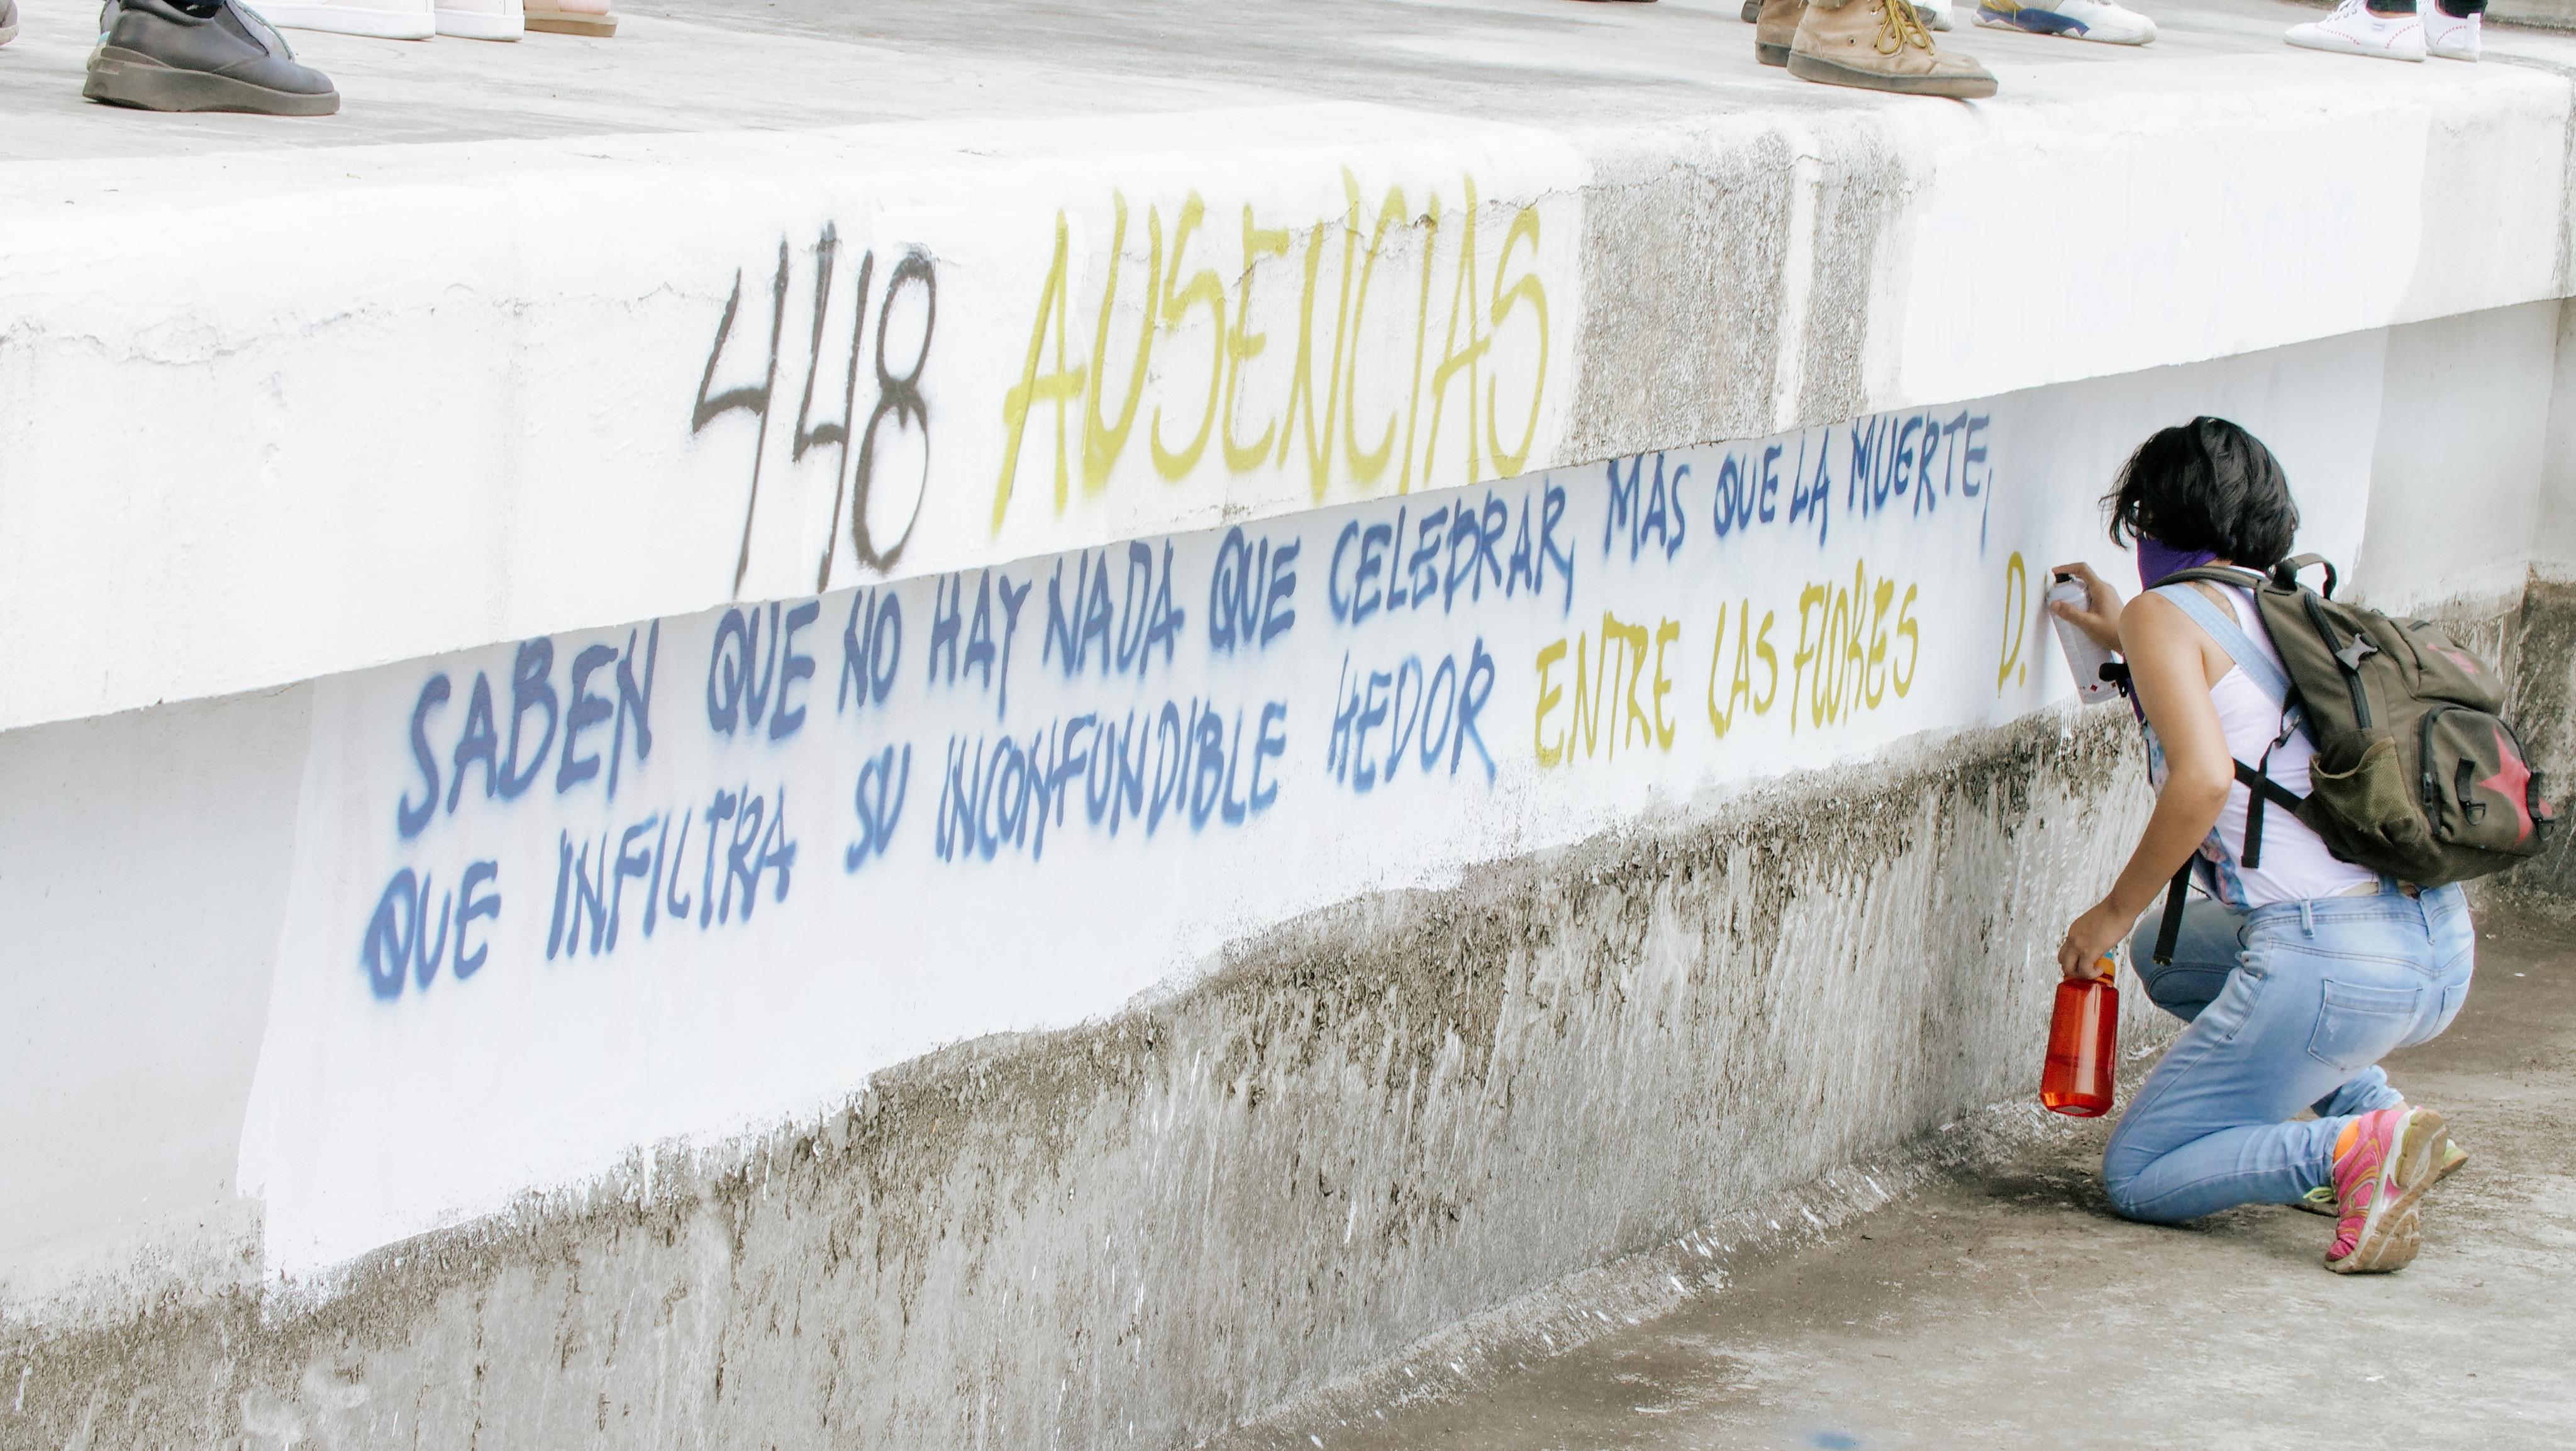 448 AUSENCIAS
SABEN QUE NO HAY NADA QUE CELEBRAR, MAS QUE LA MUERTE,
QUE INFILTRA SU INCONFUNDIBLE HEDOR ENTRE LAS FLORES D.